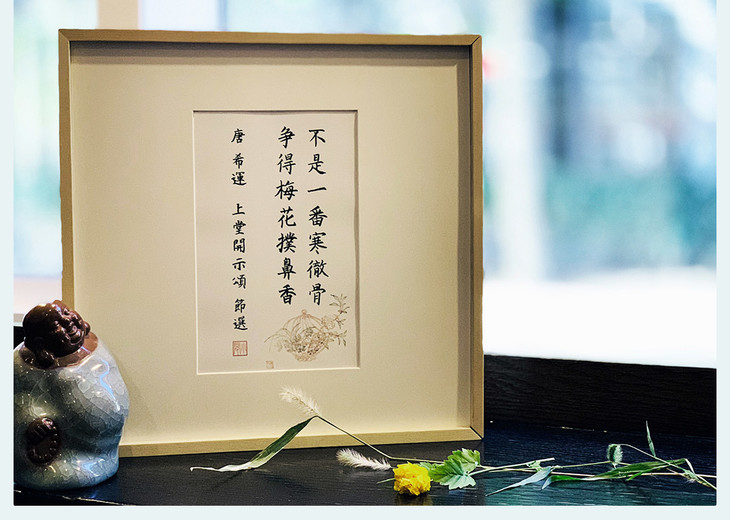 不是一番寒徹骨
争得梅花撲鼻香
唐 希運 上堂開示頌 節選